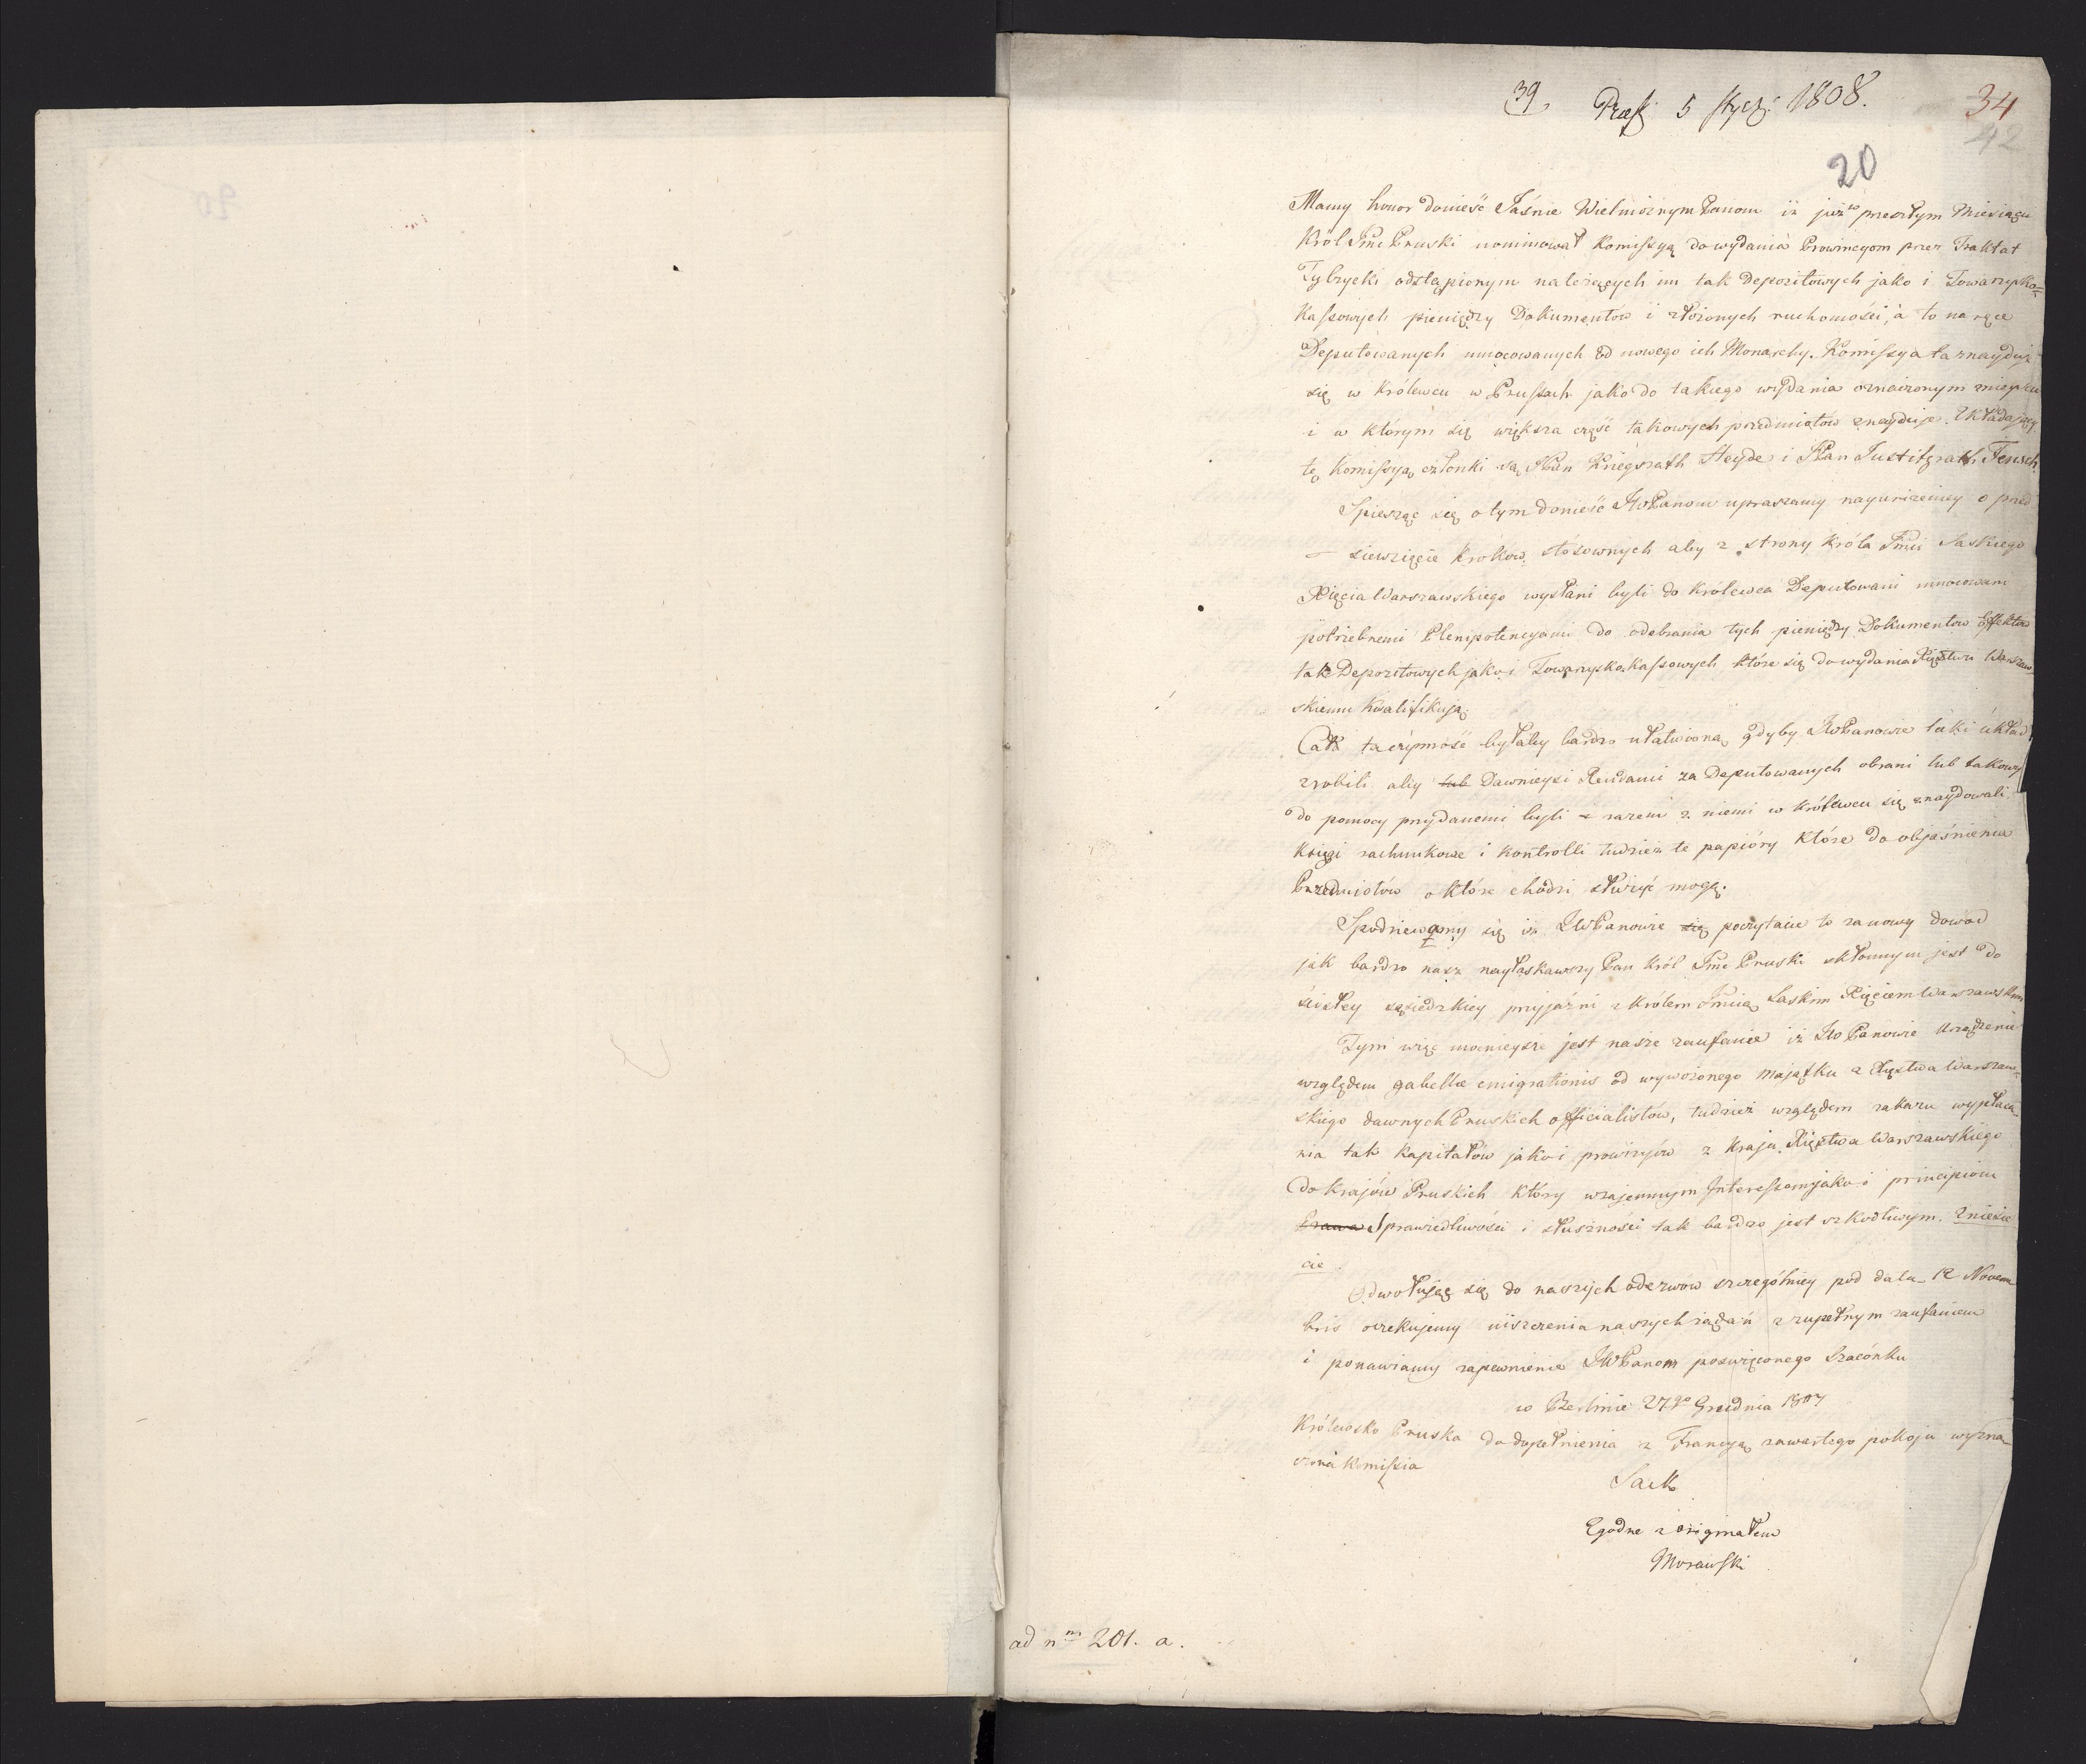 39. Praes. 5 stycz: 1808. 34
42
20
Mamy honor donieść Jaśnie Wielmożnym Panom iż już w przeszłym Miesiącu
Król Jmć Pruski nominował Komissyą do wydania Prowincyom przez Traktat
Tylżycki odstąpionym należących im tak Depozitowych jako i Towarzysko=
Kassowych pieniędzy Dokumentów i złożonych ruchomości, a to na ręce
Deputowanych umocowanych od nowego ich Monarchy. Komissya ta znayduje
się w Królewcu w Prussach jako do takiego wydania oznaczonym mieyscu
i w którym się większa część takowych przedmiotów znayduje. Składający
tę Komissyą członki są JPan Kriegsrath Heyde i JPan Justitzrath Tensch.
Spiesząc się o tym donieść JWPanom upraszamy nayuniżeniey o przed
siewzięcie kroków stósownych aby z strony Króla Jmci Saskiego
Xięcia Warszawskiego wysłani byli do Królewca Deputowani umocowani
potrzebnemi Plenipotencyami do odebrania tych pieniędzy Dokumentów Effektów
tak Depozitowych jako i Towarzysko Kassowych które się do wydania Xięstwu Warszaw
skiemu kwalifikują.
Cała ta czynność byłaby bardzo ułatwioną gdyby JWPanowie taki układ
zrobili aby lub Dawnieysi Rendanci za Deputowanych obrani lub takowym
do pomocy przydanemi byli i razem z niemi w Królewcu się znaydowali
Księgi rachunkowe i kontrolli tudzież te papióry które do objaśnienia
Przedmiotów o które chodzi służyć mogą.
Spodziewamy się iż JWPanowie się poczytacie to za nowy dowód
jak bardzo nasz nayłaskawszy Pan Król Jmć Pruski skłonnym jest do
ścisłey sąsiedzkiey przyjaźni z Królem Jmcią Saskim Xięciem Warszawskim
Tym więc mocnieysze jest nasze zaufanie iż JWPanowie Urządzenie
względem gabellae emigrationis od wywożonego majątku z Xięstwa Warszaw=
skiego dawnych Pruskich officialistów, tudzież względem zakazu wypłaca
nia tak kapitałów jako i prowizyów z kraju Xięstwa Warszawskiego
do krajów Pruskich który wzajemnym Interessom jako i principiom
Prawa Sprawiedliwości i słuszności tak bardzo jest szkodliwym. Zniesie
cie.
Odwołując się do naszych odezwów szczególniey pod datą 12 Novem
bris oczekujemy uiszczenia naszych żądań z zupełnym zaufaniem
i ponawiamy zapewnienie JWPanom poswięconego Szacónku
w Berlinie 27go Grudnia 1807
Królewsko Pruska do dopełnienia z Francyą zawartego pokoju wyzna=
czona Komissia
Sack
Zgodne z originałem
Morawski
ad nm 201. a.